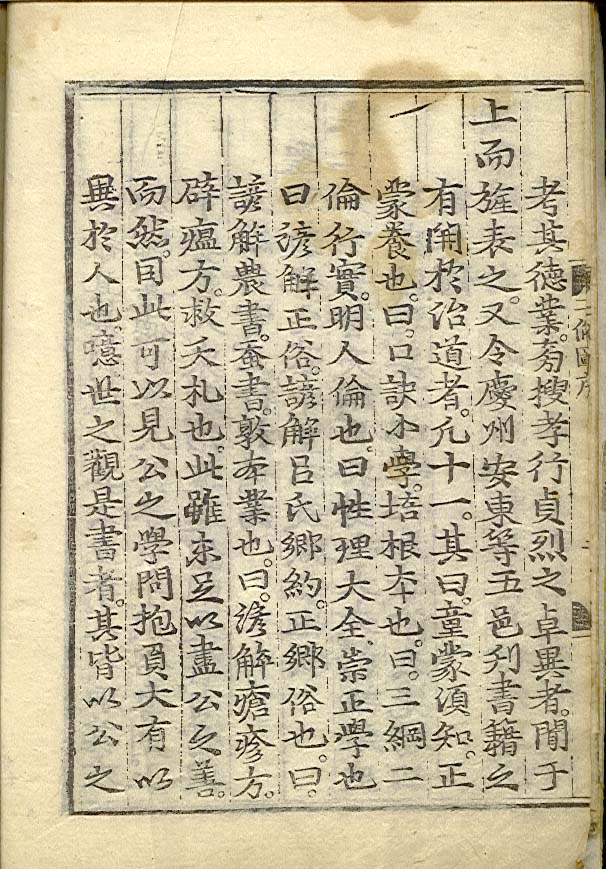 考其德業。旁搜孝行貞烈之卓異者。聞于
上而旌表之。又令慶州安東等五邑刋書籍之
有関於治道者。凢十一。其曰。童蒙須知。正
蒙養也。曰。口訣小學。培根夲也。曰。三綱二
倫行實。明人倫也。曰性理大全。崇正學也
曰諺解正俗。諺解呂氏鄉約。正鄉俗也。曰。
諺解農書。蚕書。敦夲業也。曰。諺解瘡疹方。
辟瘟方。救夭札也。此雖未足以盡公之善。
而然。因此可以見公之學問抱負大有以
異於人也。噫世之觀是書者。其皆以公之
二倫圖序